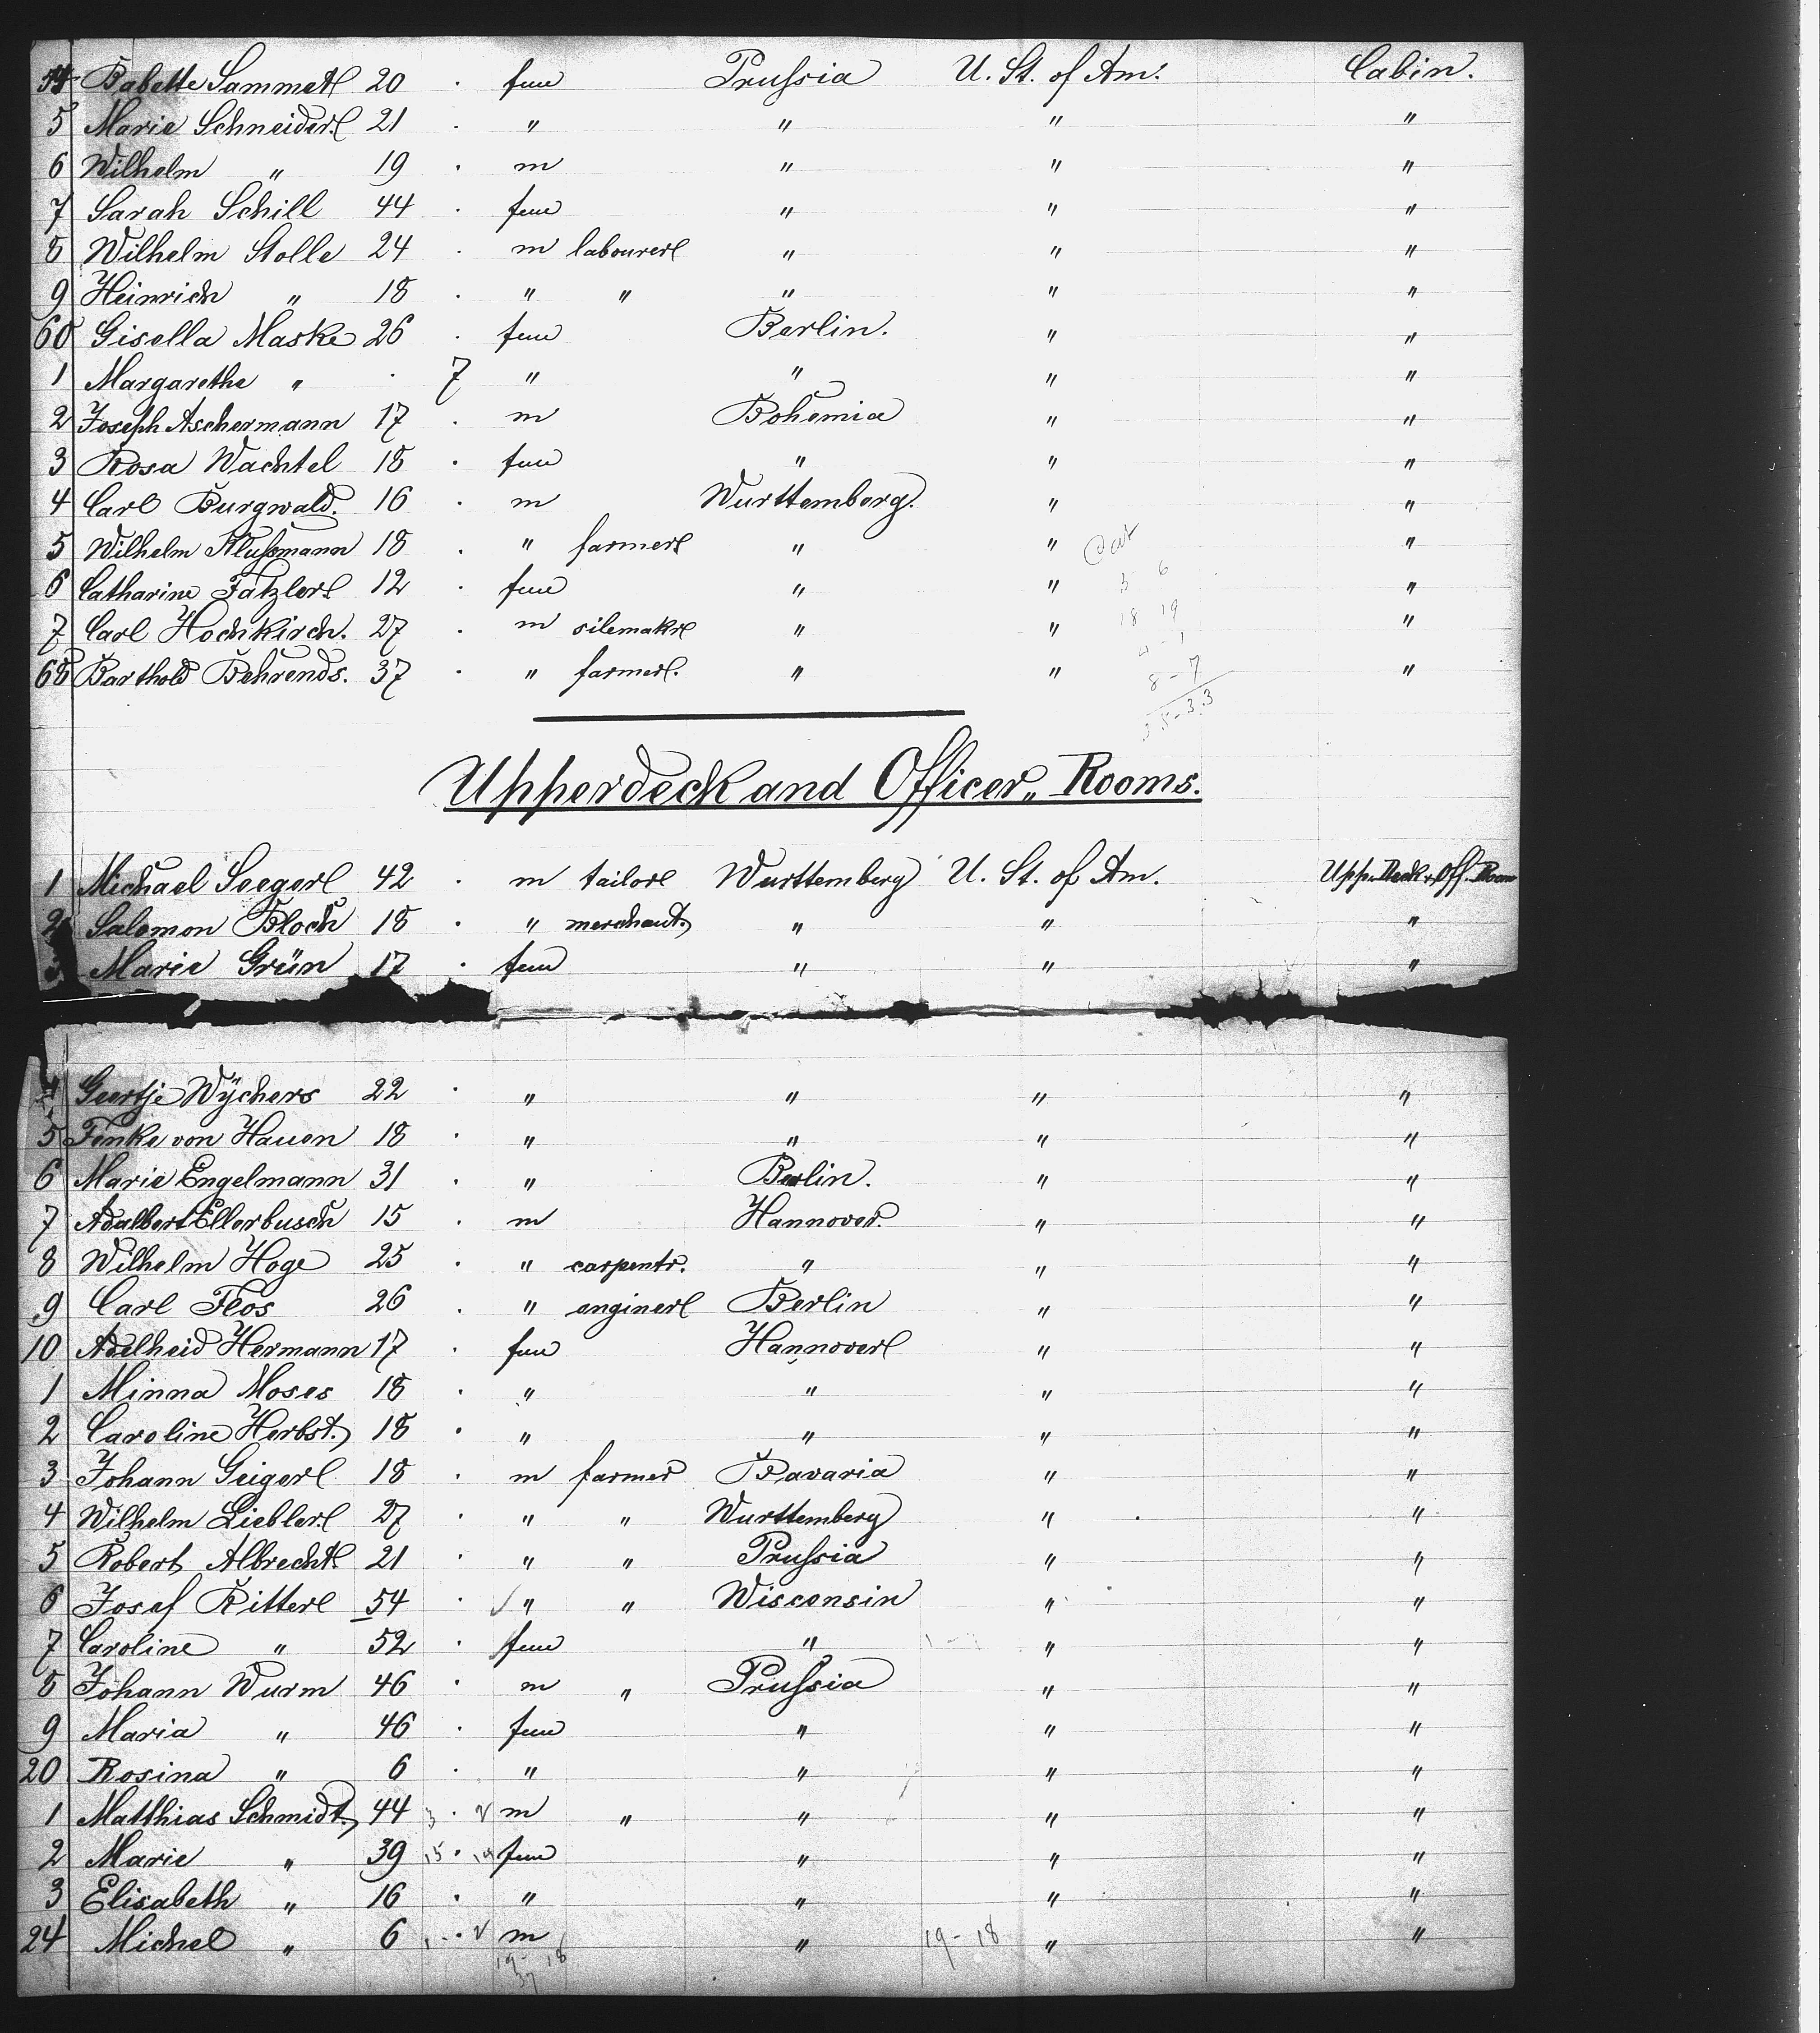 54 Babette Sammet 20 . fem Prussia U. St. of Am. Cabin.
5 Marie Schneider 21 . " " " "
6 Wilhelm " 19 . m " " "
7 Sarah Schill 44 . fem " " "
8 Wilhelm Stolle 24 . m labourer " " "
9 Heinrich " 18 . " " " " "
60 Gisella Maske 26 . fem Berlin. " "
1 Margarethe " . 7 " " " "
2 Joseph Aschermann 17 . m Bohemia " "
3 Rosa Wachtel 18 . fem " " "
4 Carl Burgwald. 16 . m Wurttemberg. " "
5 Wilhelm Klussmann 18 . " farmer " " "
6 Catharine Fatzler 12 . fem " " 5 6 "
7 Carl Hochkirch. 27 . m silemakr " " 18 19 "
4 - 1
68 Barthold Behrends. 37 . " farmer. " " 8 - 7 "
35 - 33
Upperdeck and Officer„ Rooms.
1 Michael Seeger 42 . m tailor Wurttemberg U. St. of Am. Upp. Deck & Off. Room
2 Salomon Bloch 18 . " merchant. " " "
3 Marie Grün 17 . fem " " "
4 Geertje Wÿchers 22 . " " " "
5 Fenke von Hauen 18 . " " " "
6 Marie Engelmann 31 . " Berlin. " "
7 Adalbert Ellerbusch 15 . m Hannover. " "
8 Wilhelm Hoge 25 . " carpentr. " " "
9 Carl Flos 26 . " enginer Berlin " "
10 Adelheid Hermann 17 . fem Hannover " "
1 Minna Moses 18 . " " " "
2 Caroline Herbst. 18 . " " " "
3 Johann Geiger 18 . m farmer Bavaria " "
4 Wilhelm Liebler 27 . " " Wurttemberg " "
5 Robert Albrecht 21 . " " Prussia " "
6 Josef Ritter 54 . " " Wisconsin " "
7 Caroline " 52 . fem " " "
8 Johann Wurm 46 . m " Prussia " "
9 Maria " 46 . fem " " "
20 Rosina " 6 . " " " "
1 Matthias Schmidt. 44 3 . m " " " "
2 Marie " 39 15 . fem " " "
3 Elisabeth " 16 . " " " "
24 Michel " 6 . m " 19 - 18 " "
19 - 18
37